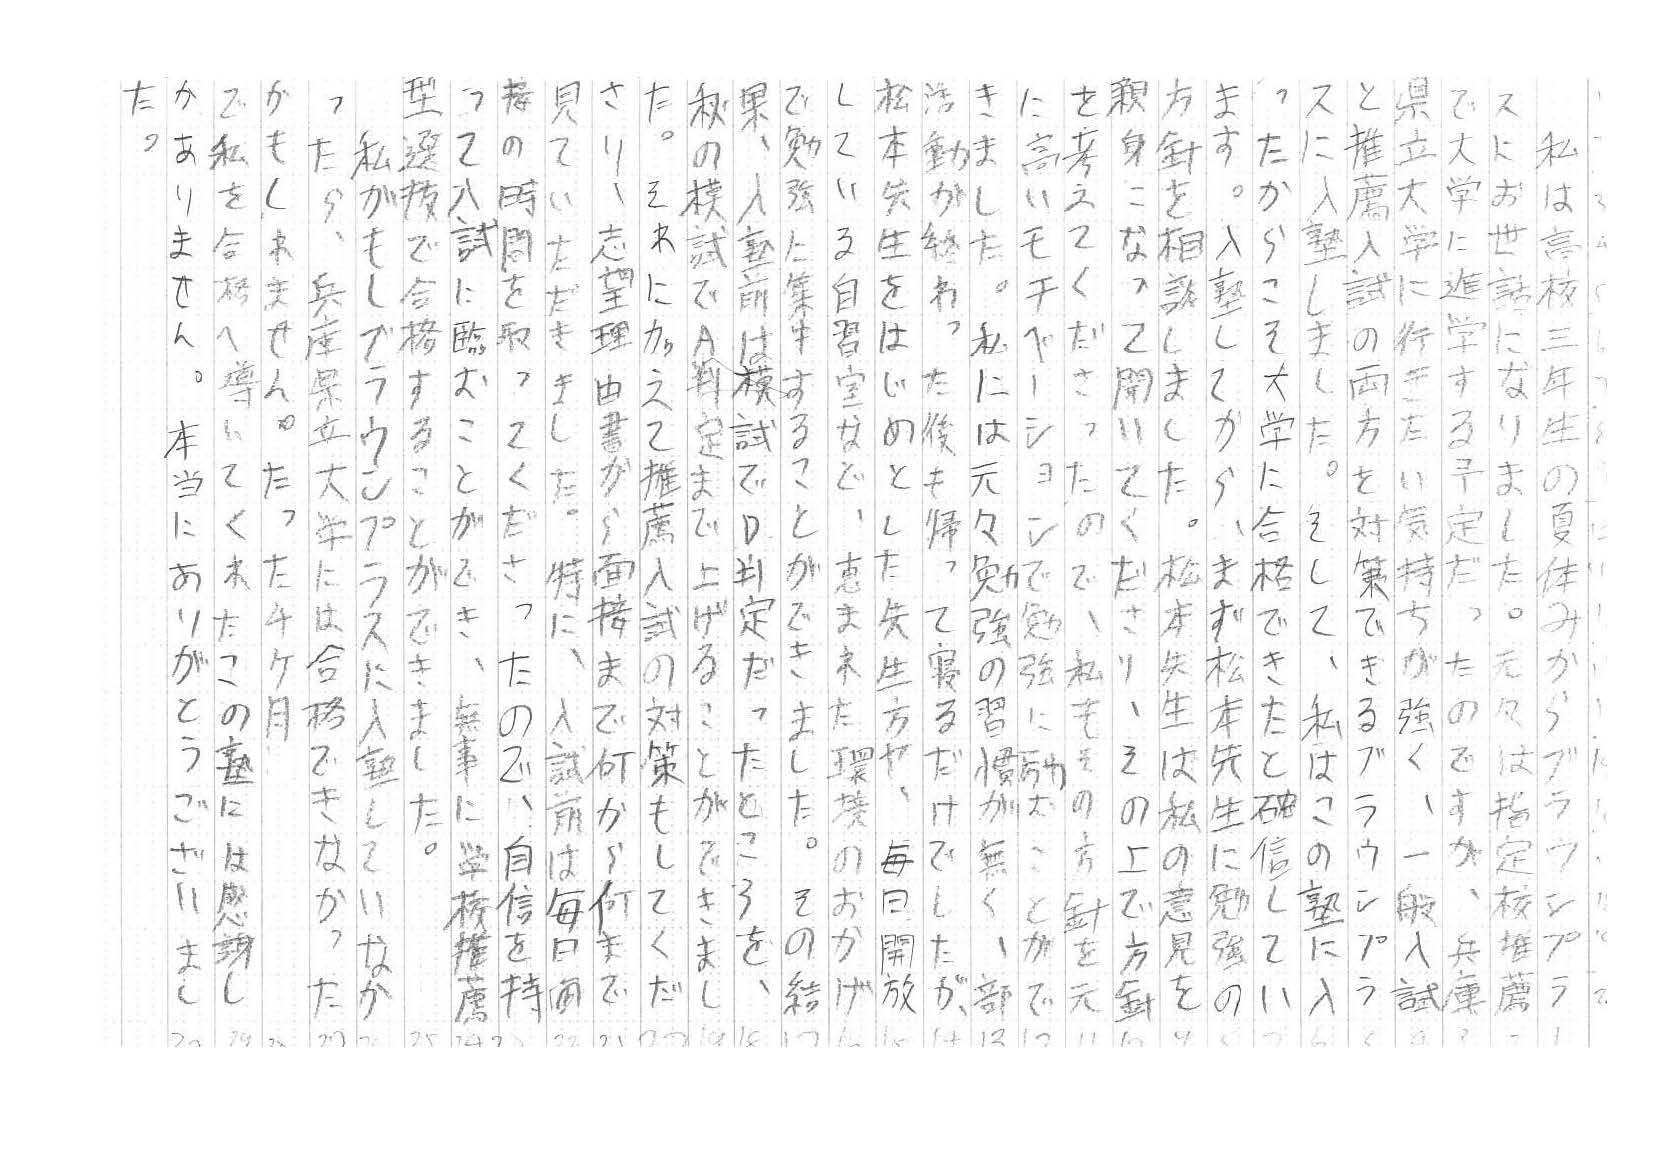 私は高校三年生の夏休みからブラウンプラ
スにお世話になりました。元々は指定校推薦
で大学に進学する予定だったのですが、兵庫
県立大学に行きたい気持ちが強く、一般入試
と推薦入試の両方を対策できるブラウンプラ
スに入塾しました。そして、私はこの塾に入
ったからこそ大学に合格できたと確信してい
ます。入塾してから、まず松本先生に勉強の
方針を相談しました。松本先生は私の意見を
親身になって聞いてくださり、その上で方針
を考えてくださったので、私もその方針を元
に高いモチベーションで勉強に励むことがで
きました。私には元々勉強の習慣が無く、部
活動が終わった後も帰って寝るだけでしたが、
松本先生をはじめとした先生方や、毎日開放
している自習室など、恵まれた環境のおかげ
で勉強に集中することができました。その結
果、入塾前は模試でD判定だったところを、
秋の模試でA判定まで上げることができまし
た。それに加えて推薦入試の対策もしてくだ
さり、志望理由書から面接まで何から何まで
見ていただきました。特に、入試前は毎日面
接の時間を取ってくださったので、自信を持
って入試に臨むことができ、無事に学校推薦
型選抜で合格することができました。
私がもしブラウンプラスに入塾していなか
ったら、兵庫県立大学には合格できなかった
かもしれません。たった4ヶ月
で私を合格へ導いてくれたこの塾には感謝し
かありません。本当にありがとうございまし
た。
1
2
3
4
5
6
7
8
9
10
11
12
13
14
15
16
17
18
19
20
21
22
23
24
25
26
27
28
29
30